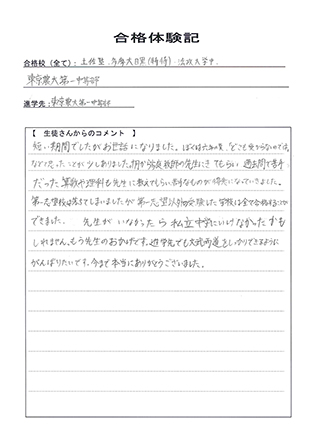 合格体験記
合格校(全て): 土佐塾、多摩大目黒(特待)、法政大学中、
東京農大第一中等部
進学先: 東京農大第一中等部
【 生徒さんからのコメント 】
短い期間でしたがお世話になりました。ぼくは六年の夏、どこも受からないのでは、
などと思ったことが少しありました。 家庭教師の先生にきてもらい 過去問で苦手
だった算数や理科も先生に教えてもらい 得意になっていきました。
第一志望校は落ちてしまいましたが 第一志望以外の受験した学校は全て合格することが
できました. 先生がいなかったら私立中学にいけなかったかも
しれません。もう先生のおかげです。進学先でも文武両道をしっかりできるように
がんばりたいです。今まで本当にありがとうございました。